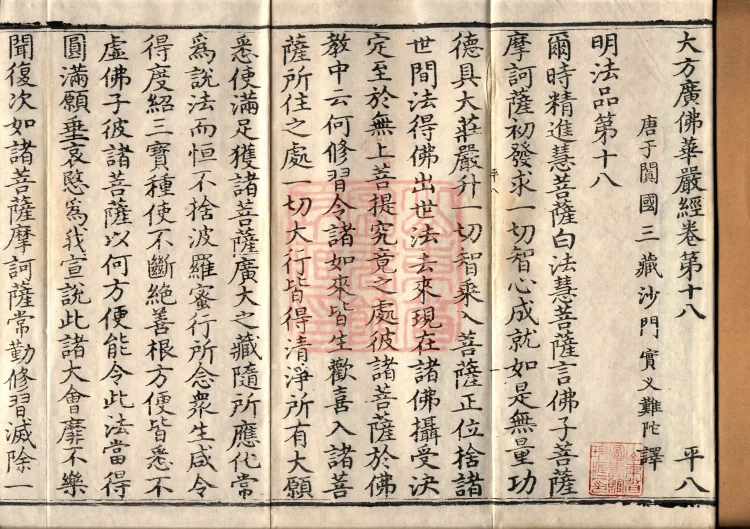 大方廣佛華嚴經卷第十八 平八
唐于闐國三藏沙門實叉難陀譯
明法品第十八
爾時精進慧菩薩白法慧菩薩言佛子菩薩
摩訶薩初發求一切智心成就如是無量功
平八
德具大莊嚴升一切智乘入菩薩正位捨諸
世間法得佛出世法去來現在諸佛攝受決
定至於無上菩提究竟之處彼諸菩薩於佛
教中云何修習令諸如來皆生歡喜入諸菩
薩所住之處一切大行皆得清淨所有大願
悉使滿足獲諸菩薩廣大之藏隨所應化常
爲說法而恒不捨波羅蜜行所念衆生咸令
得度紹三寶種使不斷絕善根方便皆悉不
虛佛子彼諸菩薩以何方便能令此法當得
圓滿願垂哀愍爲我宣說此諸大會靡不樂
聞復次如諸菩薩摩訶薩常勤修習滅除一